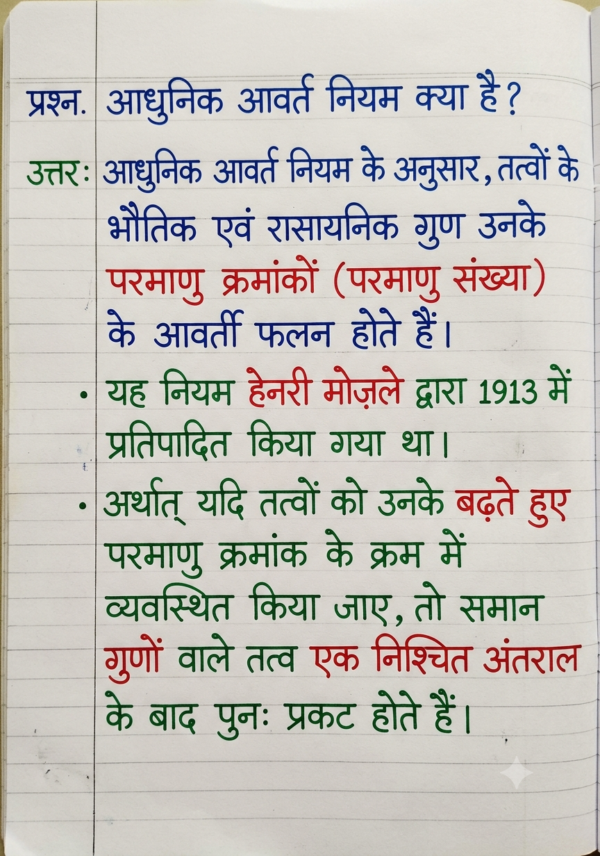 प्रश्न. आधुनिक आवर्त नियम क्या है?
उत्तर: आधुनिक आवर्त नियम के अनुसार, तत्वों के
भौतिक एवं रासायनिक गुण उनके
परमाणु क्रमांकों (परमाणु संख्या)
के आवर्ती फलन होते हैं।
• यह नियम हेनरी मोज़ले द्वारा 1913 में
प्रतिपादित किया गया था।
• अर्थात् यदि तत्वों को उनके बढ़ते हुए
परमाणु क्रमांक के क्रम में
व्यवस्थित किया जाए, तो समान
गुणों वाले तत्व एक निश्चित अंतराल
के बाद पुनः प्रकट होते हैं।